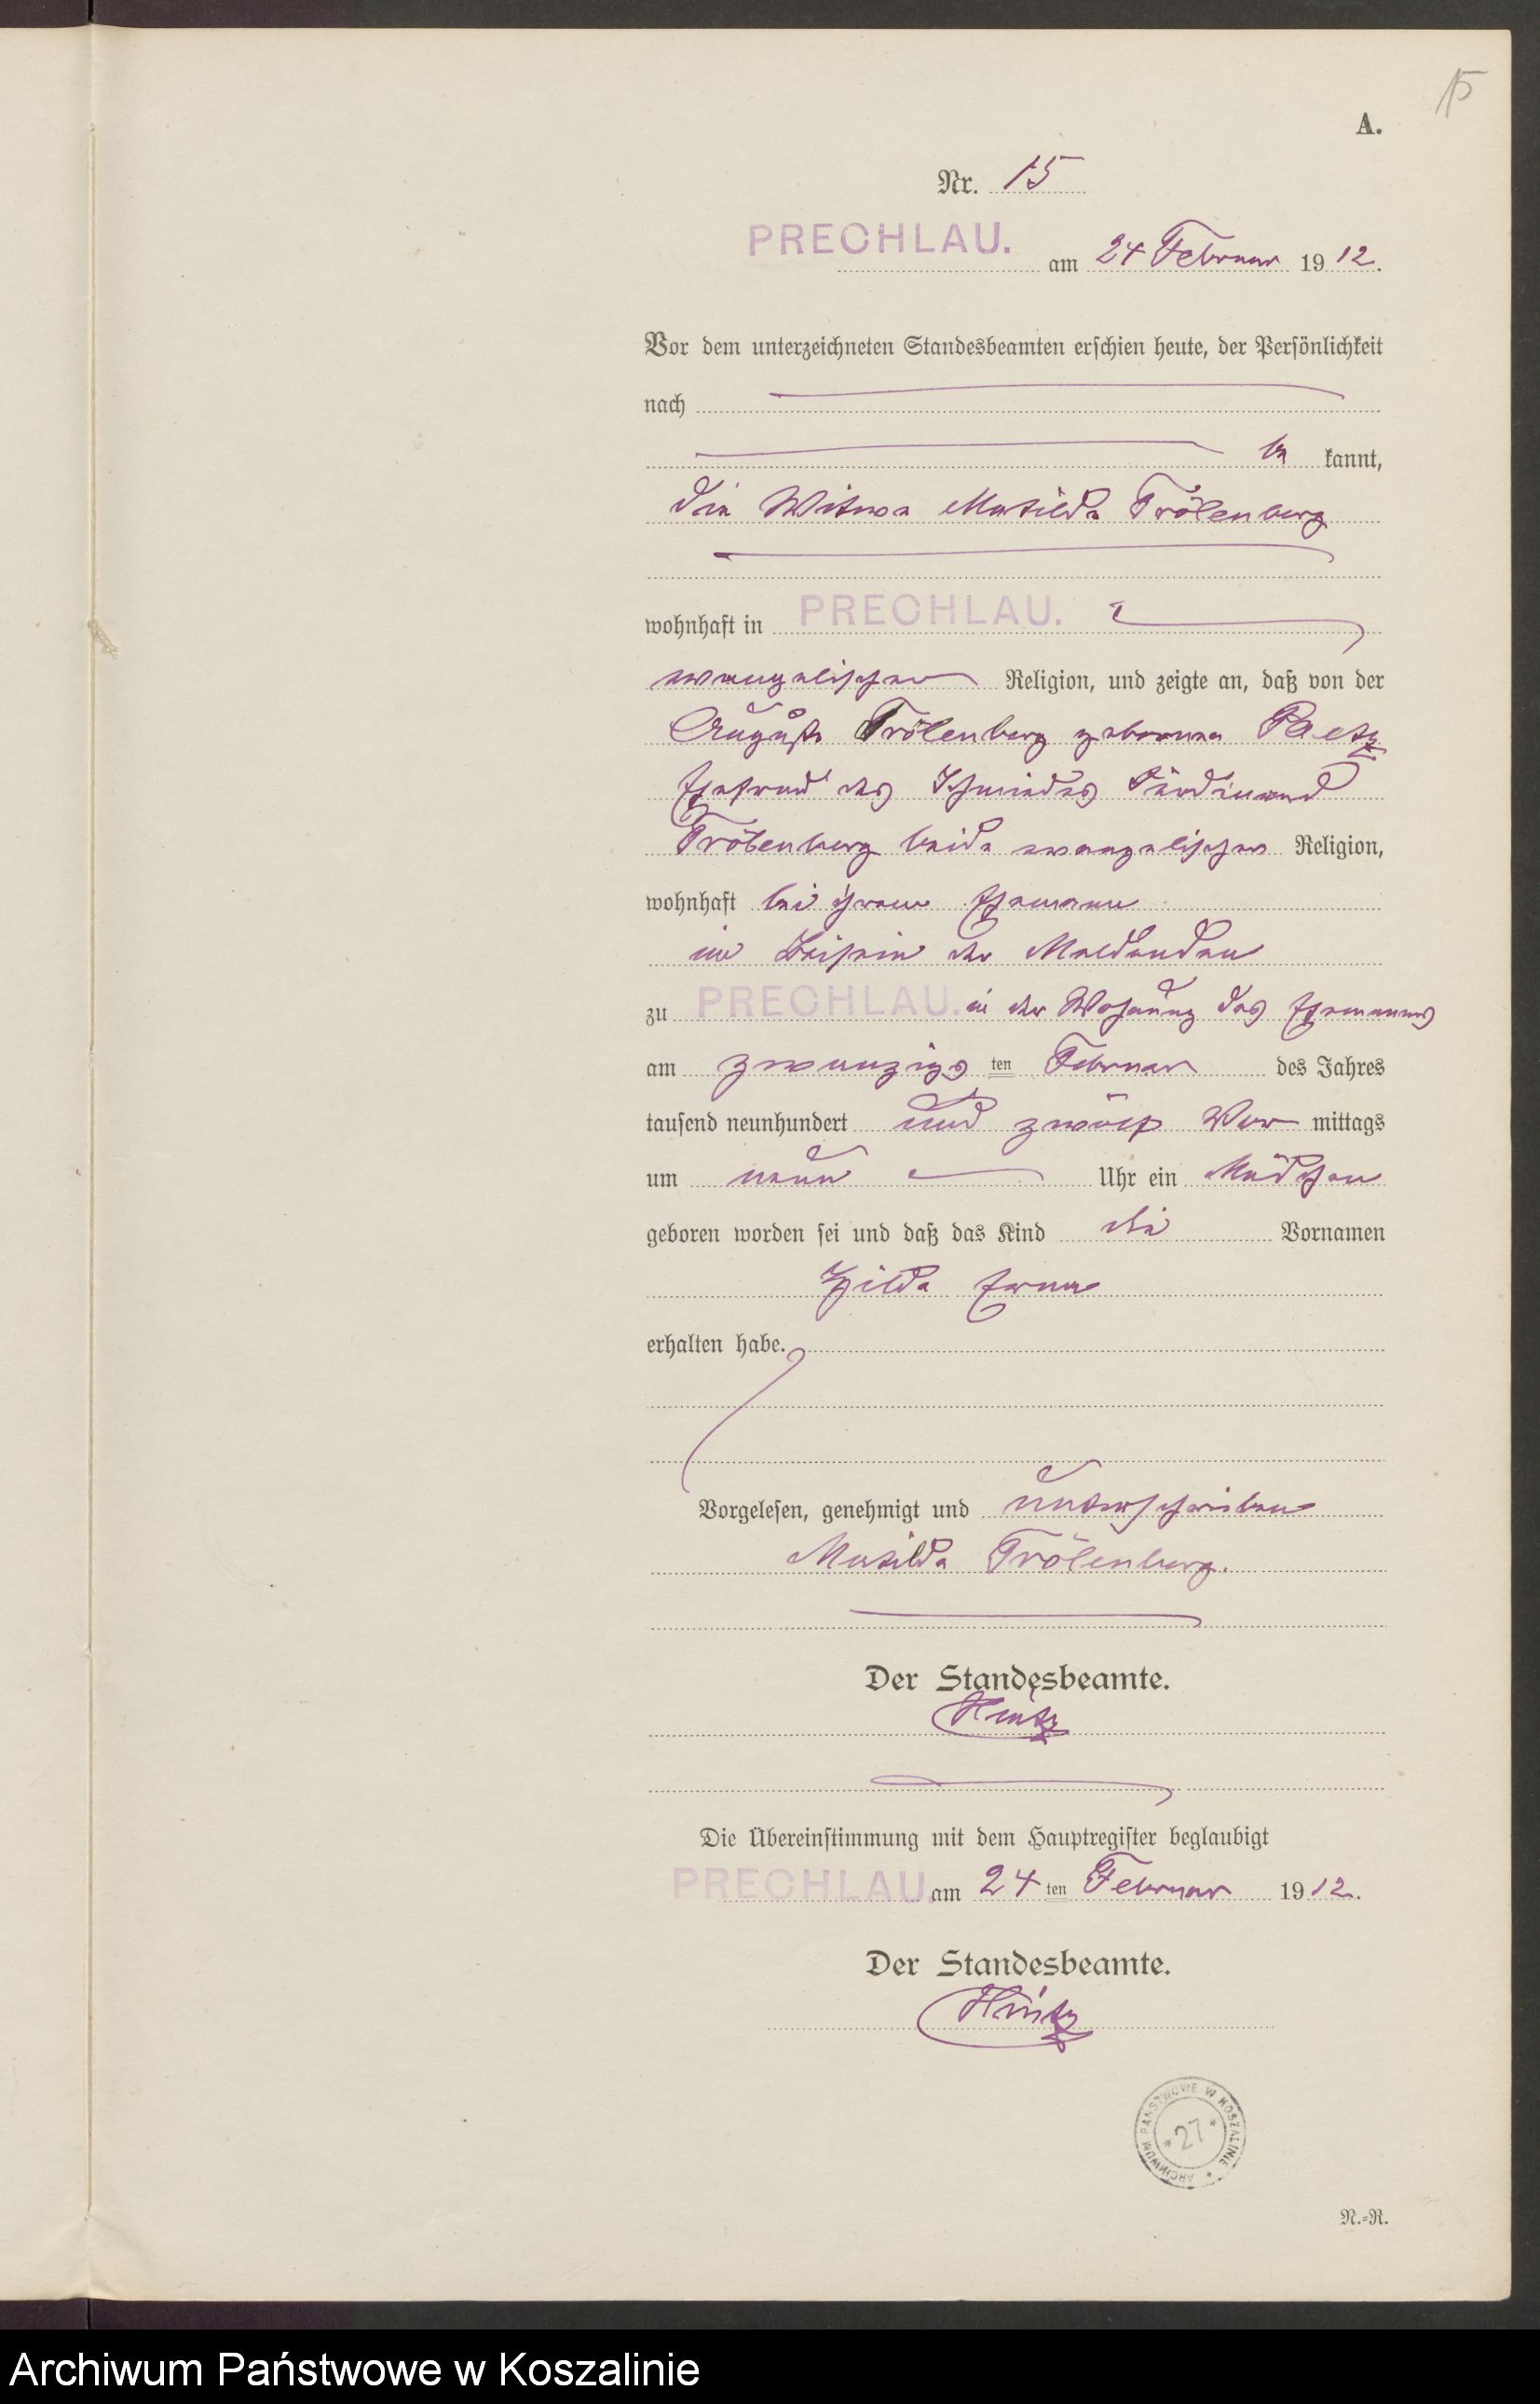 15
A.
Nr. 15
PRECHLAU. am 24 Februar 1912.
Vor dem unterzeichneten Standesbeamten erschien heute, der Persönlichkeit
nach
be kannt,
die Witwe Matilde Trölenberg
wohnhaft in PRECHLAU.
evangelischer Religion, und zeigte an, daß von der
Auguste Trölenberg geborenen Paetz
Ehefrau des Schmiedes Ferdinand
Trölenberg beide evangelischer Religion,
wohnhaft bei ihrem Ehemann
im Beisein der Meldenden
zu PRECHLAU. in der Wohnung des Ehemannes
am zwanzigs ten Februar des Jahres
tausend neunhundert und zwölf Vor mittags
um neun Uhr ein Mädchen
geboren worden sei und daß das Kind die Vornamen
Hilda Erna
erhalten habe.
Vorgelesen, genehmigt und unterschrieben
Matilde Trölenberg.
Der Standesbeamte.
Hintz
Die Übereinstimmung mit dem Hauptregister beglaubigt
PRECHLAU. am 24 ten Februar 1912.
Der Standesbeamte.
Hintz
ARCHIWUM PAŃSTWOWE W KOSZALINIE * 27 *
N.-R.
Archiwum Państwowe w Koszalinie